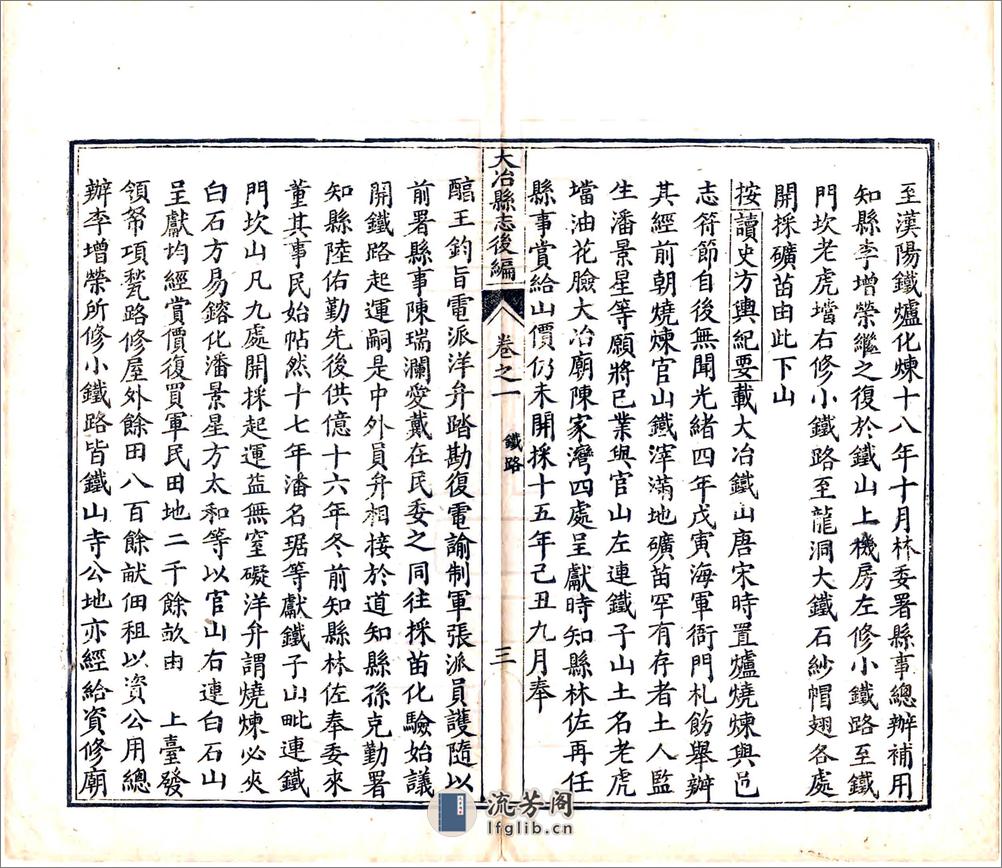 至漢陽鐵爐化煉十八年十月林委署縣事總辦補用
知縣李增榮繼之復於鐵山上機房左修小鐵路至鐵
門坎老虎壋右修小鐵路至龍洞大鐵石紗帽翅各處
開採礦苗由此下山
按讀史方輿紀要載大冶鐵山唐宋時置爐燒煉與邑
志符節自後無聞光緒四年戊寅海軍衙門札飭舉辦
其經前朝燒煉官山鐵滓滿地礦苗罕有存者土人監
生潘景星等願將己業與官山左連鐵子山土名老虎
壋油花臉大冶廟陳家灣四處呈獻時知縣林佐再任
縣事賞給山價仍未開採十五年己丑九月奉
大冶縣志後編
卷之一
鐵路
三
醕王鈞旨電派洋弁踏勘復電諭制軍張派員護隨以
前署縣事陳瑞瀾愛戴在民委之同往採苗化驗始議
開鐵路起運嗣是中外員弁相接於道知縣孫克勤署
知縣陸佑勤先後供億十六年冬前知縣林佐奉委來
董其事民始帖然十七年潘名琚等獻鐵子山毗連鐵
門坎山凡九處開採起運益無窒礙洋弁謂燒煉必夾
白石方易鎔化潘景星方太和等以官山右連白石山
呈獻均經賞價復買軍民田地二千餘畝由　上臺發
領帑項甃路修屋外餘田八百餘畝佃租以資公用總
辦李增榮所修小鐵路皆鐵山寺公地亦經給資修廟
流芳阁
lfglib.cn